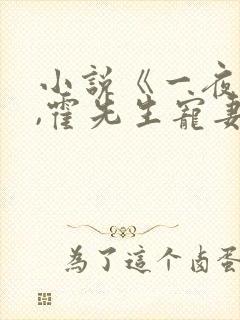 小说《一夜
,霍先生宠妻
為了這个卤蛋